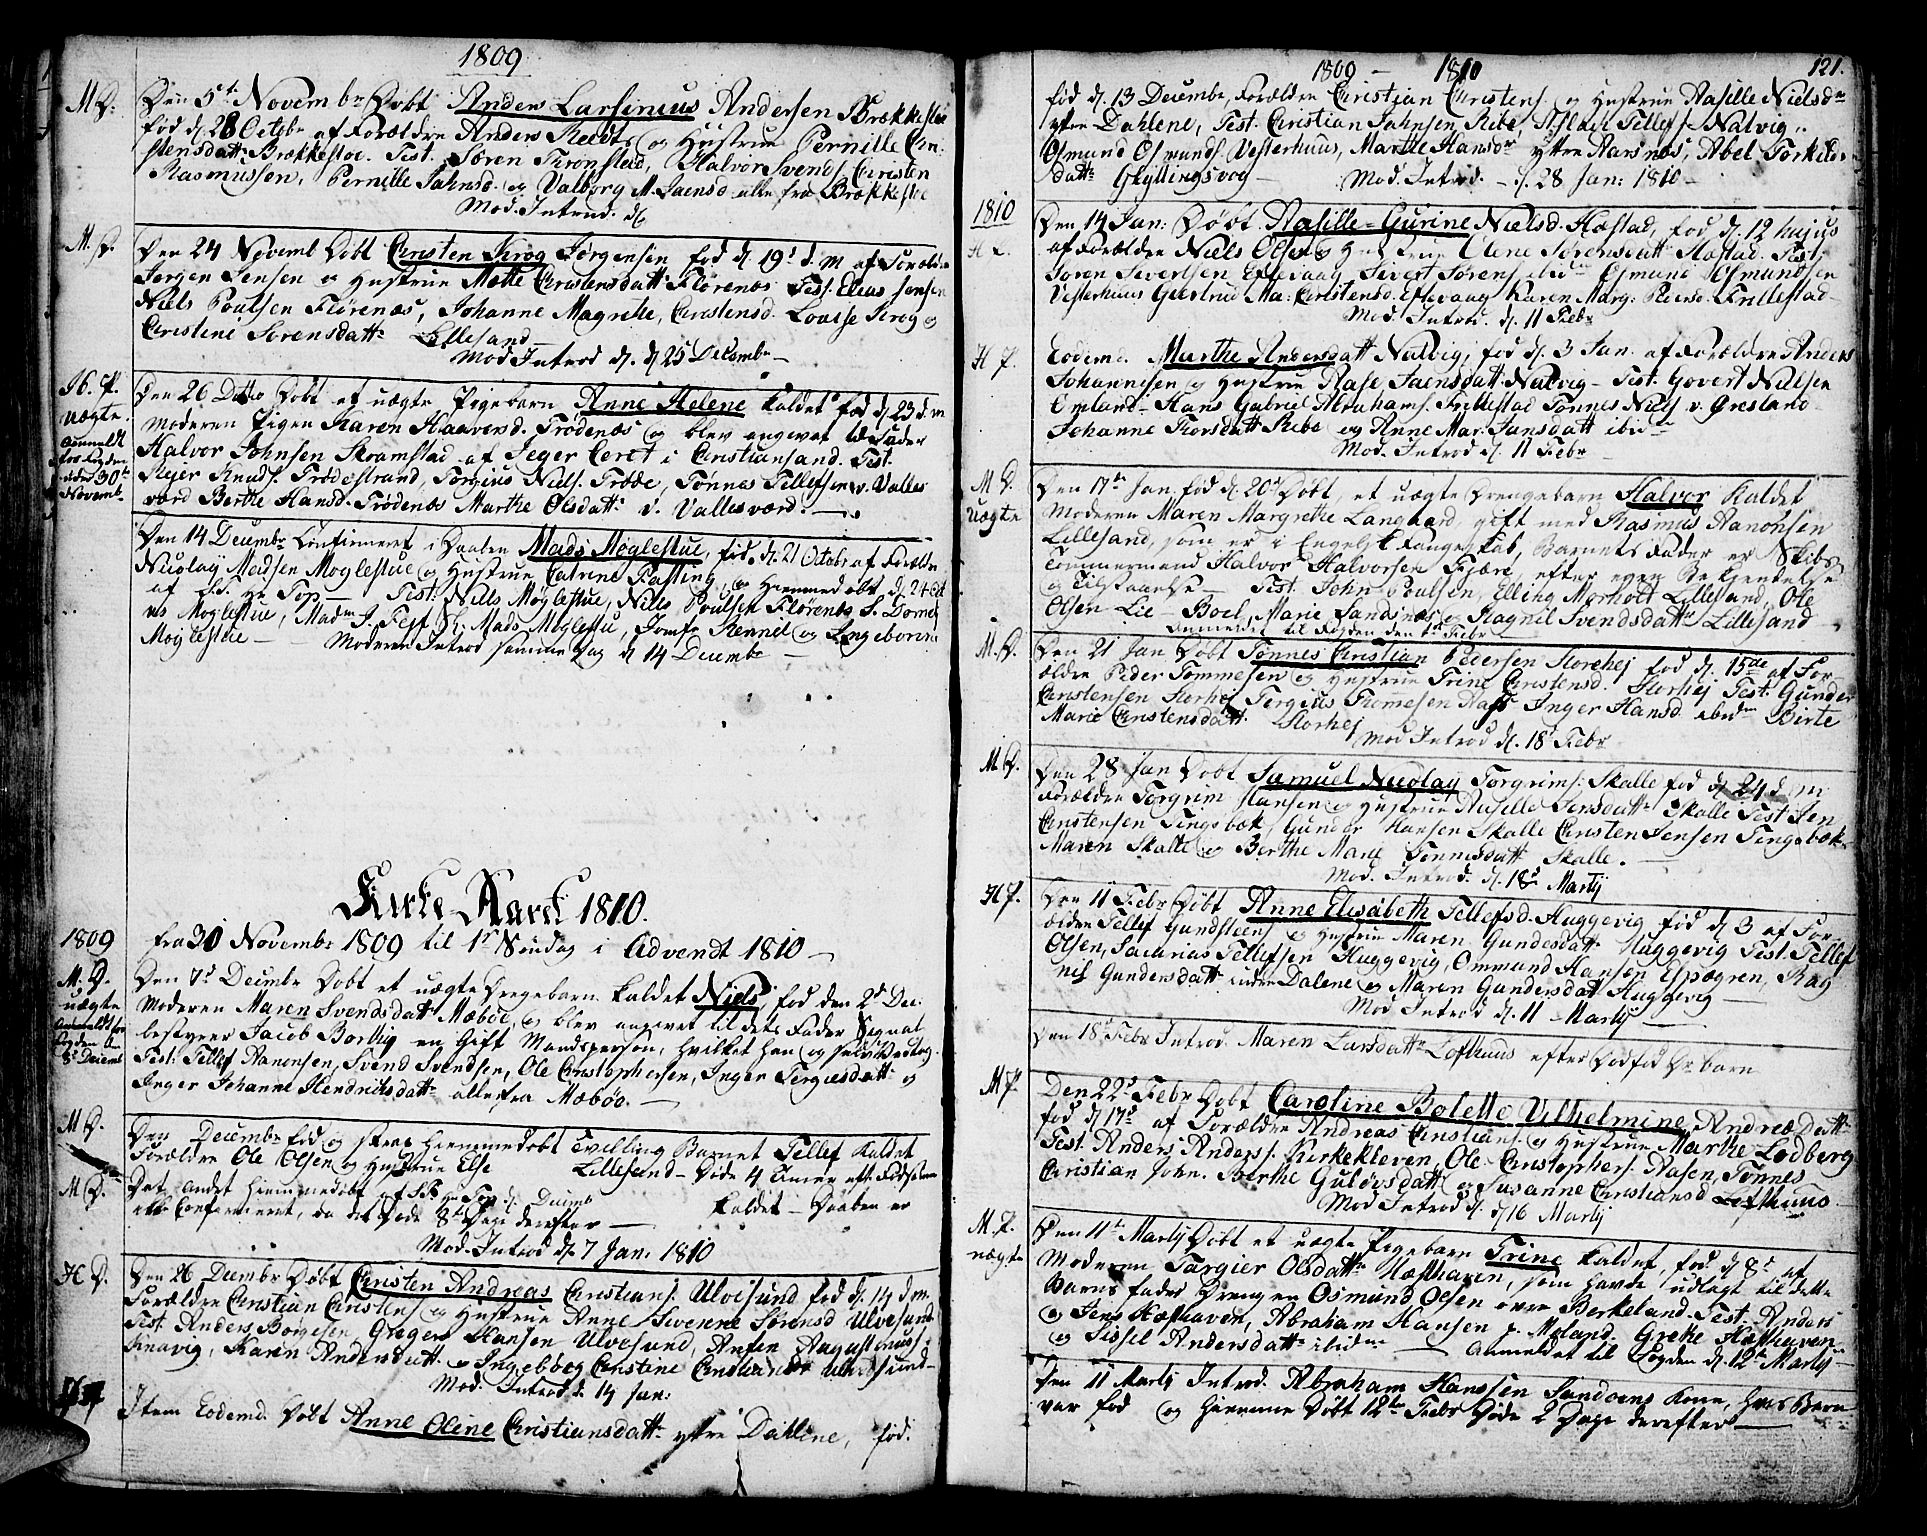 1809
M D:
Den 5te Novembr Døbt Anders Larsenius Andersen Brækkestøe
fød d. 28 Octobr af Forældre Anders Reedts og Hustrue Pernille Chri-
stensdattr Brækkestoe. Test. Søren Tronstad, Halvor Svends. Christen
Rasmussen, Pernille Jahnsd. og Valborg M. Jaensd alle fra Brækkestøe
Mod. Introd. d.
M. P.
Den 24 Novemb Døbt Christen Krog Jørgensen fød d. 19d d. m af Forældre
Jørgen Jensen og Hustrue Mette Christensdatt Florenæs Test. Elias Jensen
Niels Poulsen Florenæs, Johanne Magrethe, Christensd. Lovisse Krog og
Christine Sørensdattr Lillesand
Mod Introd d. d 25 Decembr
H. P.
Uægte
Anmeldt
for Fogden
under 30te
Novemb.
Den 26 Ditto Døbt et uægte Pigebarn Anne Helene kaldet fød d. 23 d. m
Moderen Pigen Karen Haaversd. Trødenæs og blev angivet til Fader
Halvor Johnsen Skramstad af Jeger Corct i Christiansand. Test.
Rejer Knuds. Trødestrand, Torgius Niels. Trøde, Tønnes Tellefsen v. Valles
værd Berthe Hansd. Trødenæs Marthe Olsdattr v. Vallesværd.
Den 14 Decembr Confirmeret i Daaben Mads Møglestue, fød d. 21 Octobr af Forældre
Nicolay Madsen Møglestue og Hustrue Catrine Fasting, og hiemmedøbt d. 24 Oct
af S. S. Hr Top Test. Niels Møglestue, Niels Poulsen Florenæs S. Dorne
Møglestue, Madm J. Fejf Sr. Mads Møglestue, Jomfr Kennel og Engeborrine
Møglestue Moderen Introd samme Dag d 14 Decembr
Kirke-Aaret 1810.
1809
Fra 30 Novembr 1809 til 1te Søndag i Advendt 1810
M. D.
uægte
Anmeldt for
Fogden d.
8d Decemb
Den 7d Decembr Døbt et uægte Drengebarn kaldet Niels, fød den 2d Dec.
Moderen Maren Svendsdatt Mæbøe, og blev angivet til dets Fader Signal
bestyrer Jacob Borthig en Gift Mandsperson, hvilket han og selv vedtog.
Test. Tellef Aanonsen, Svend Svendsen, Ole Christophersen, Inger Tergiesdattr og
Inger Johanne Hendriksdattr alle fra Mæbøe.
M D.
Den Decembr fød og strax hiemmedøbt Tvilling Barnet Tellef kaldet
Forældre Ole Olsen og Hustrue Else Lillesand Døde 4 Timer efter Fødselen
M D.
Det andet hiemmedøbt af S.S. Hr Top d. Decemb kaldet Daaben er
ikke Confirmeret, da det Døde 8te Dag derefter
Mod. Introd d. 7 Jan: 1810
H D.
Den 26 Decembr Døbt Christen Andreas Christians. Ulvesund fød d. 14 d m.
Forældre Christian Christens og Hustrue Anne Sivenne Sørensd Ulvesund
Test. Anders Børgesen, Greger Hansen Ulvesund, Anfen Augustinus:
Kinavig, Karen Andersdatt. og Ingeborg Christine Christiansdr Ulvesund
Mod. Introd d. 14 Jan:
Item Eodemd. Døbt Anne Oline Christiansdattr ytre Dahlene, fød.
1809 — 1810 121.
fød d. 13 Decembr, Forældre Christian Christens. og Hustrue Aasille Nielsdr
ytre Dahlene, Test. Christian Jahnsen Ribe, Aslach Tellefs. Nalvig,
Osmund Osmunds. Vesterhuus, Marthe Hansdr ytre Aarsnæs, Abel Torkilds-
dattr Gkyllingsvog Mod. Introd. d. 28 Jan: 1810
1810
H D.
Den 14 Jan: Døbt Aasille-Gurine Nielsd. Hæstad, fød d. 12 hujus
af Forældre Niels Olsen og Hustrue Elene Sørensdatt. Hæstad. Test.
Søren Severtsen Eftevaag Sivert Sørens. ibidm Osmund Osmundsen
Vesterhuus Giertrud Ma: Christensd. Eftevaag Karen Marg: Reersd. Frillestad
Mod Introd. d. 11 Febr
H P.
Eodemd. Marthe Andersdatt Nalvig, fød d. 3 Jan. af Forældre Anders
Johannesen og Hustrue Aase Jaensdatt. Nalvig Test. Govert Nielsen
Omland Hans Gabriel Abrahams. Frillestad Tønnes Niels v. Øresland
Johanne Thorsdatt Ribe og Anne Mar: Jansdatt ibidm
Mod. Introd d. 11 Febr
M D.
Uægte
Den 17de Jan. fød d. 20d Døbt, et uægte Drengebarn Halvor kaldet
Moderen Maren Margrethe Langaard, gift med Rasmus Aanonsen
Lillesand, som er i Engelsk Fangeskab, Barnets Fader er Skibs
Tømmermand Halvor Halvorsen Fjære, efter egen Bekjentelse
og Tilstaaelse Test. John Poulsen, Elling Morholt Lillesand, Ole
Olsen Lie Boel Marie Sandsnæs og Ragnil Svendsdattr Lillesand
Anmeldet til Fogden den 1d Febr
M. D.
Den 21 Jan Døbt Tønnes Christian Pedersen Storehej fød d. 15de af For-
ældre Peder Tommesen og Hustrue Trine Christensd. Storhej Test. Gunder
Christensen Storhej Tergius Tommesen Aas Inger Hansd. ibidm Birte
Marie Christensdatt. Storhej
Mod Introd d. 18 Febr
M D.
Den 28 Jan Døbt Samuel Nicolay Torgrims. Skalle fød d. 24 d m
Forældre Torgrim Hansen og Hustrue Aasille Jensdatt. Skalle Test. Jen
Christensen Tingsbæk, Gunder Hansen Skalle Christen Jensen Tingsbæk
Maren Skalle og Berthe Marie Tønnesdatt Skalle.
Mod. Introd. d. 18d Martij
H P.
Den 11 Febr Døbt Anne Elisabeth Tellefsd. Huggevig fød d. 3 af For-
ældre Tellef Gundstens. og Hustrue Maren Gundersdattr Huggevig Test. Tellef
Olsen, Sacarias Tellefsen Huggevig, Ommund Hansen Eppegren, Rag
nil Gundersdattr inden Dalene og Maren Gundersdatt Huggevig
Mod Introd d. 11 Martij
Den 18d Febr Introd. Maren Larsdattr Lofthuus efter Dødfød Dr barn
M P.
Den 22d Febr Døbt Caroline Bolette Vilhelmine Andreæ Dattr
fød d. 17d af Forældre Andreas Christians. og Hustrue Marthe Lodberg
Test. Anders Anders. Kirkekleven, Ole Christophers. Aasen, Tønnes
Christian John. Berthe Guldvsdatt og Susanne Christiansd Lofthuus
Mod Introd d. d 16 Martij
M. P.
uægte
Den 11te Martij Døbt et uægte Pigebarn Trine kaldet, fød d. 8d af
Moderen Targier Olsdattr Hæfthaven, som havde udlagt til dette
Barns fader Dreng en Osmund Olsen øvre Berkeland. Test. Anders
og Jens Hæfthaven, Abraham Hansen p. Møland. Grethe Hæfthaven
og Sissel Andersdatt ibidm Anmeldet til Fogden d. 12te Martij
Den 11 Martij Introd. Abraham Hanssen Sandøens Kone, hvis Barn
var fød og hiemme Døbt 12te Febr Døde 2 Dage derefter